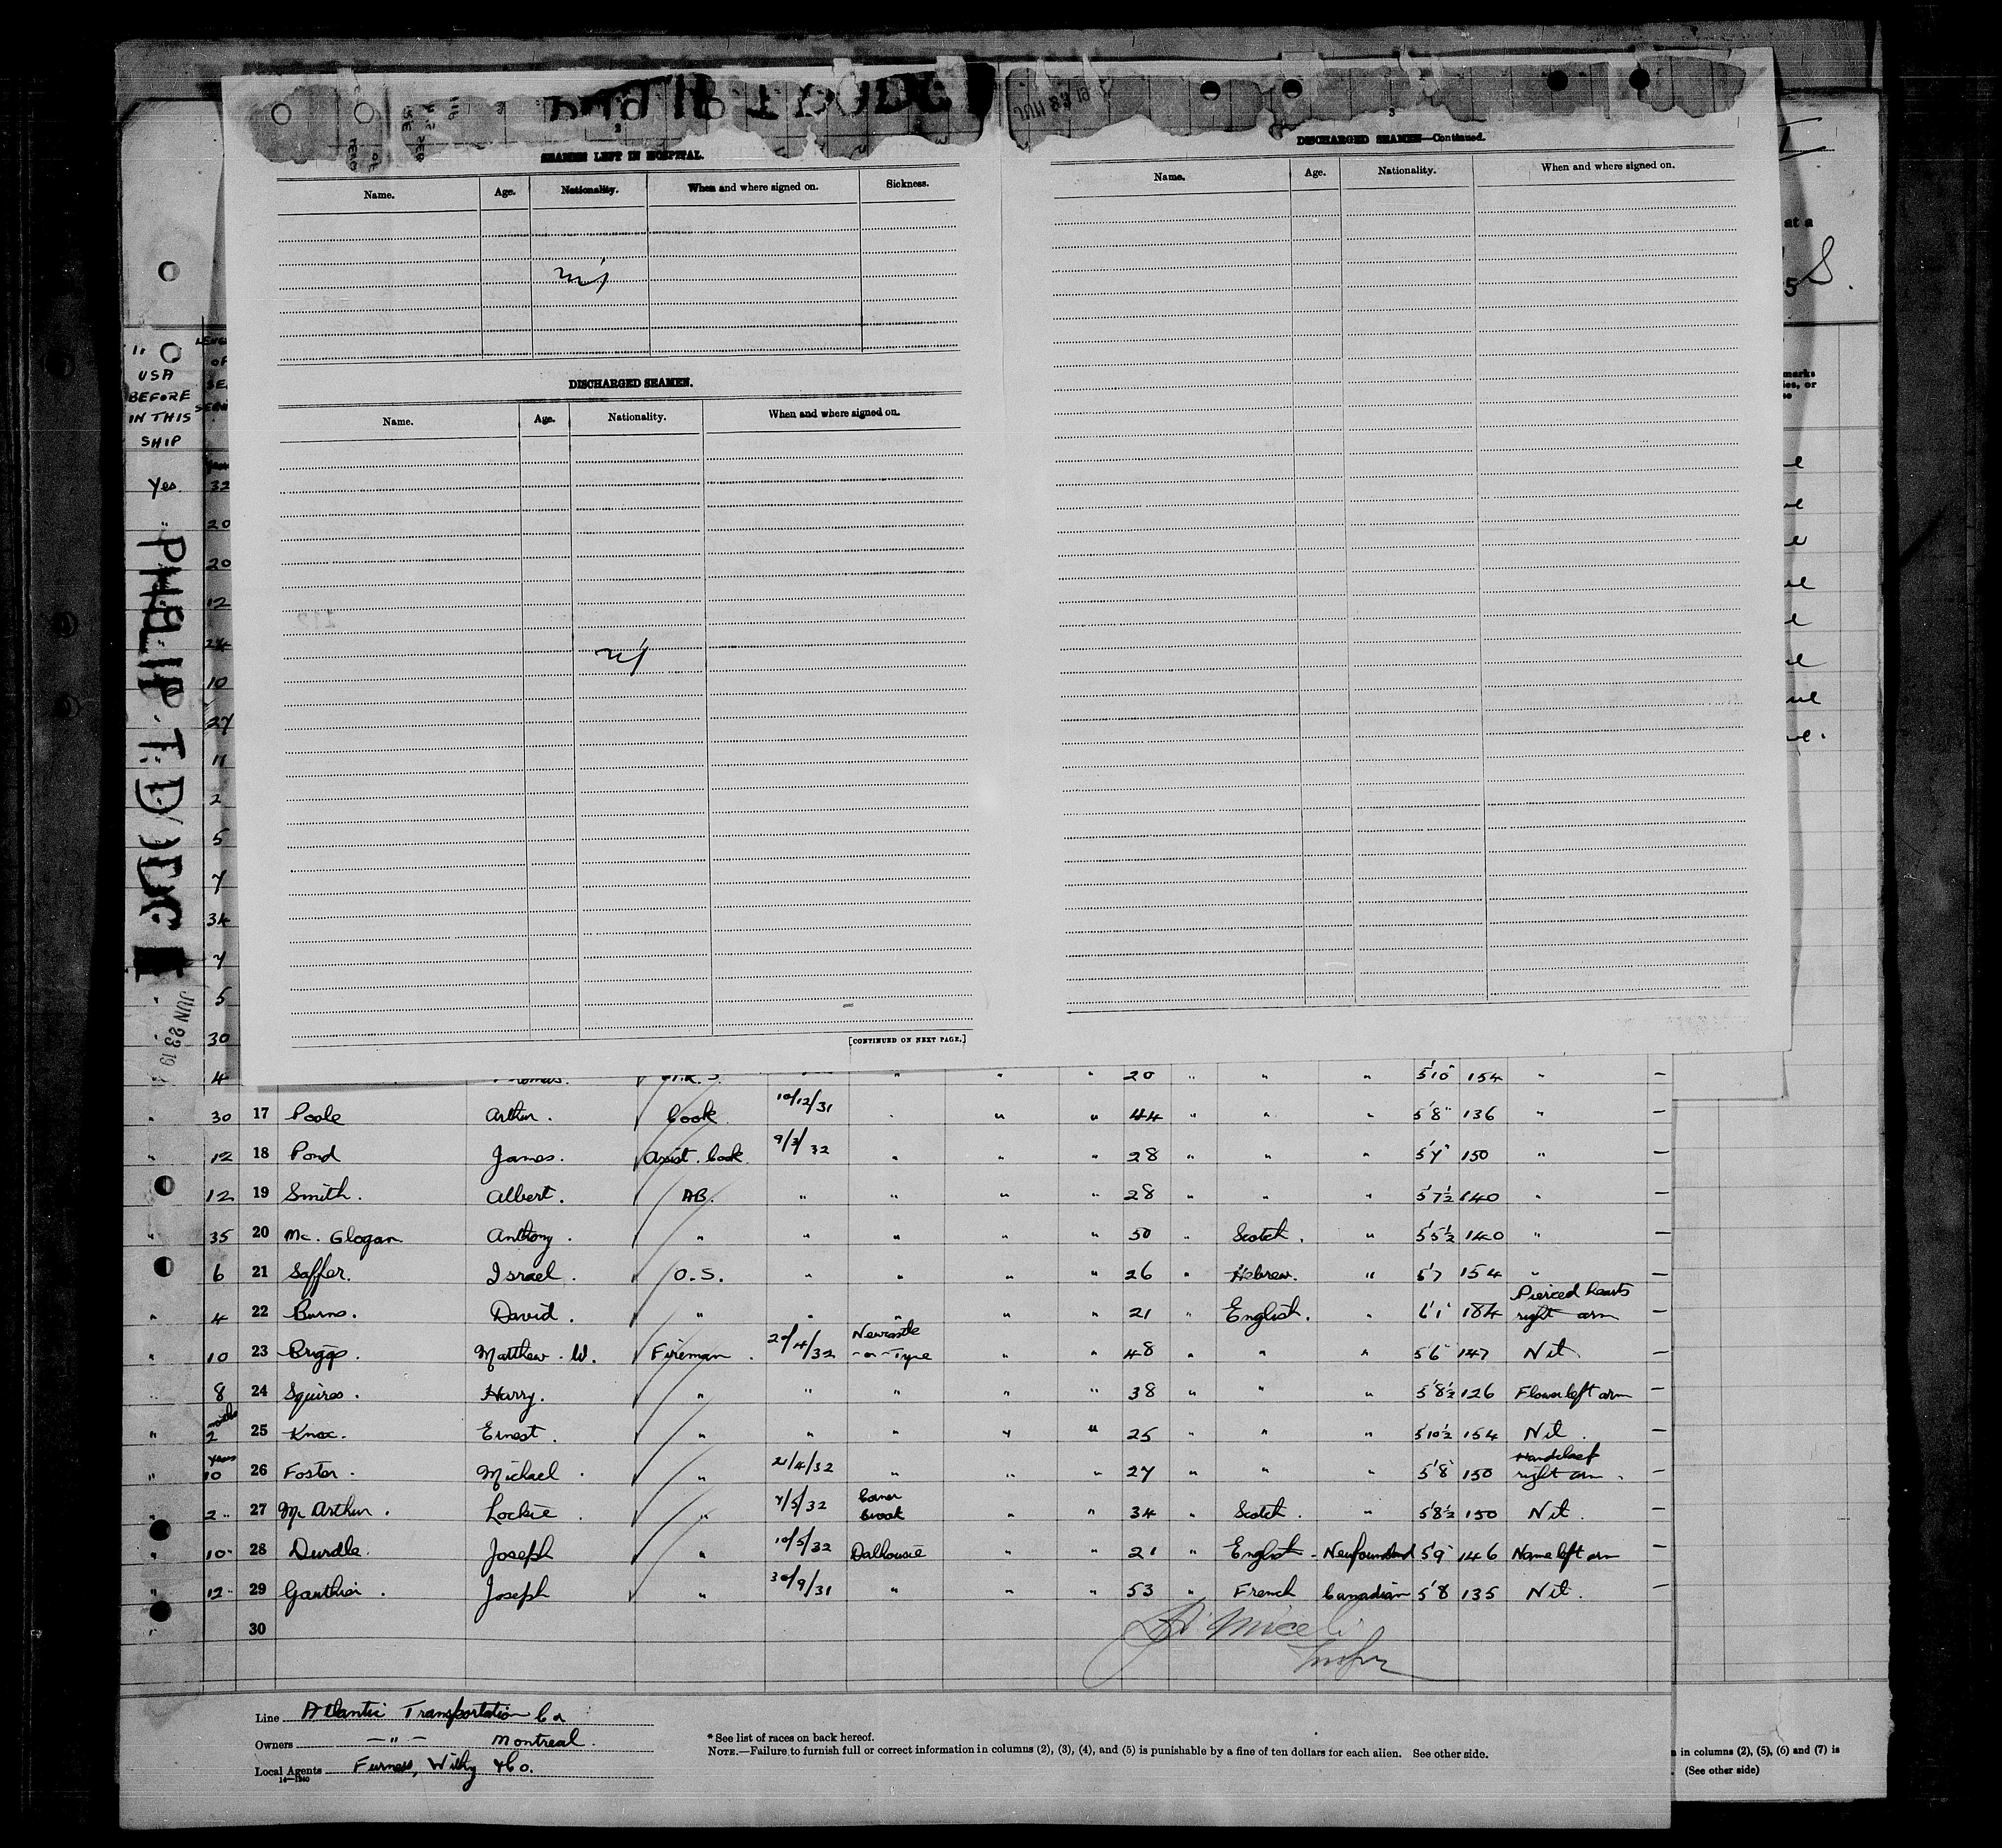 2
SEAMEN LEFT IN HOSPITAL.
Name. Age. Nationality. When and where signed on. Sickness.
Nil
DISCHARGED SEAMEN.
Name. Age. Nationality. When and where signed on.
Nil
[CONTINUED ON NEXT PAGE.]
3
DISCHARGED SEAMEN—Continued.
Name. Age. Nationality. When and where signed on.
USA
BEFORE
IN THIS
SHIP
Yes 32
" 20
20
12
24
10
27
11
2
5
7
34
7
5
30
JUN 23 19
" 4 Thomas. " " " 20 " " " 5'10" 154 " —
" 30 17 Poole Arthur. Cook 10/12/31 " " " 44 " " " 5'8" 136 " —
" 12 18 Pond James. Assist. Cook 9/3/32 " " " 28 " " " 5'7" 150 " —
12 19 Smith. Albert. AB. " " " " 28 " " " 5'7½ 140 " —
" 35 20 Mc. Glogan Anthony. " " " " " 50 " Scotch. " 5'5½ 140 " —
6 21 Saffer. Israel. O.S. " " " " 26 " Hebrew. " 5'7 154 " —
" 4 22 Burns. David. " " " " " 21 " English. " 6'1" 184 Pierced hearts right arm —
" 10 23 Briggs. Matthew. W. Fireman. 20/4/32 Newcastle -on-Tyne " " 48 " " " 5'6" 147 Nil. —
" 8 24 Squires. Harry. " " " " " 38 " " " 5'8½ 126 Flower left arm —
" months 2 25 Knox. Ernest. " " " " " 25 " " " 5'10½ 154 Nil. —
" years 10 26 Foster. Michael. " 21/4/32 " " " 27 " " " 5'8" 150 Handclasp right arm. —
" 2 " 27 Mc Arthur. Lockie. " 7/5/32 Corner Brook " " 34 " Scotch. " 5'8½ 150 Nil. —
" 10 " 28 Durdle. Joseph " 10/5/32 Dalhousie " " 21 " English - Newfoundland 5'9" 146 Name left arm —
" 12 " 29 Gauthier. Joseph " 30/9/31 " " " 53 " French Canadian 5'8 135 Nil. —
" 30
Line Atlantic Transportation Co
Owners — " — Montreal.
Local Agents Furness, Withy & Co.
14—1240
* See list of races on back hereof.
NOTE.—Failure to furnish full or correct information in columns (2), (3), (4), and (5) is punishable by a fine of ten dollars for each alien. See other side.
in columns (2), (5), (6) and (7) is
(See other side)